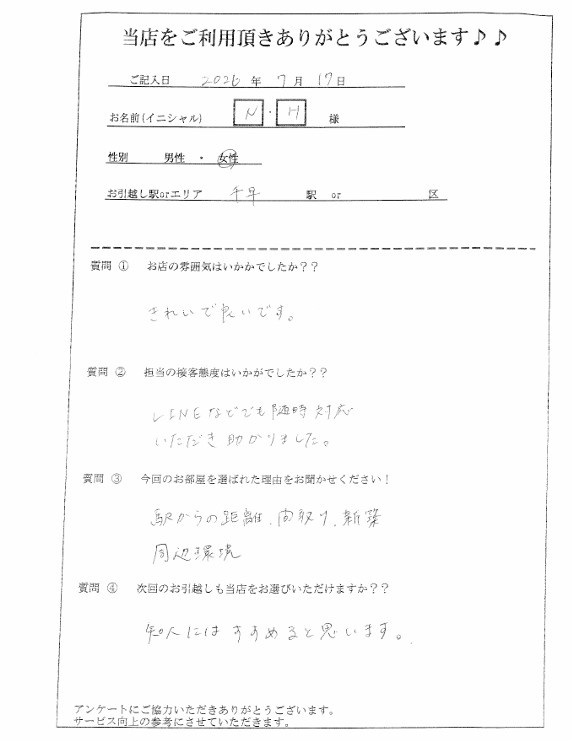 当店をご利用頂きありがとうございます♪♪
ご記入日 2026 年 7 月 17 日
お名前(イニシャル) N・H 様
性別 男性 ・ 女性
お引越し駅orエリア 千早 駅 or 区
質問 ① お店の雰囲気はいかかでしたか??
きれいで良いです。
質問 ② 担当の接客態度はいかがでしたか??
LINEなどでも随時対応
いただき助かりました。
質問 ③ 今回のお部屋を選ばれた理由をお聞かせください!
駅からの距離、間取り、新築
周辺環境
質問 ④ 次回のお引越しも当店をお選びいただけますか??
知人にはすすめると思います。
アンケートにご協力いただきありがとうございます。
サービス向上の参考にさせていただきます。